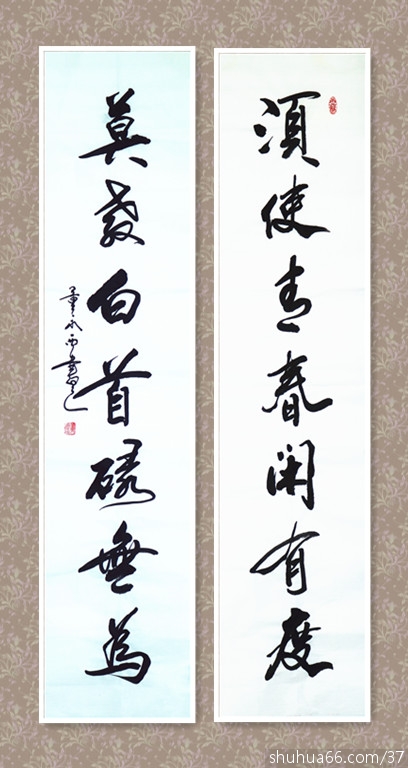 須使青春閑有度
莫教白首碌無為
shuhua66.com/37